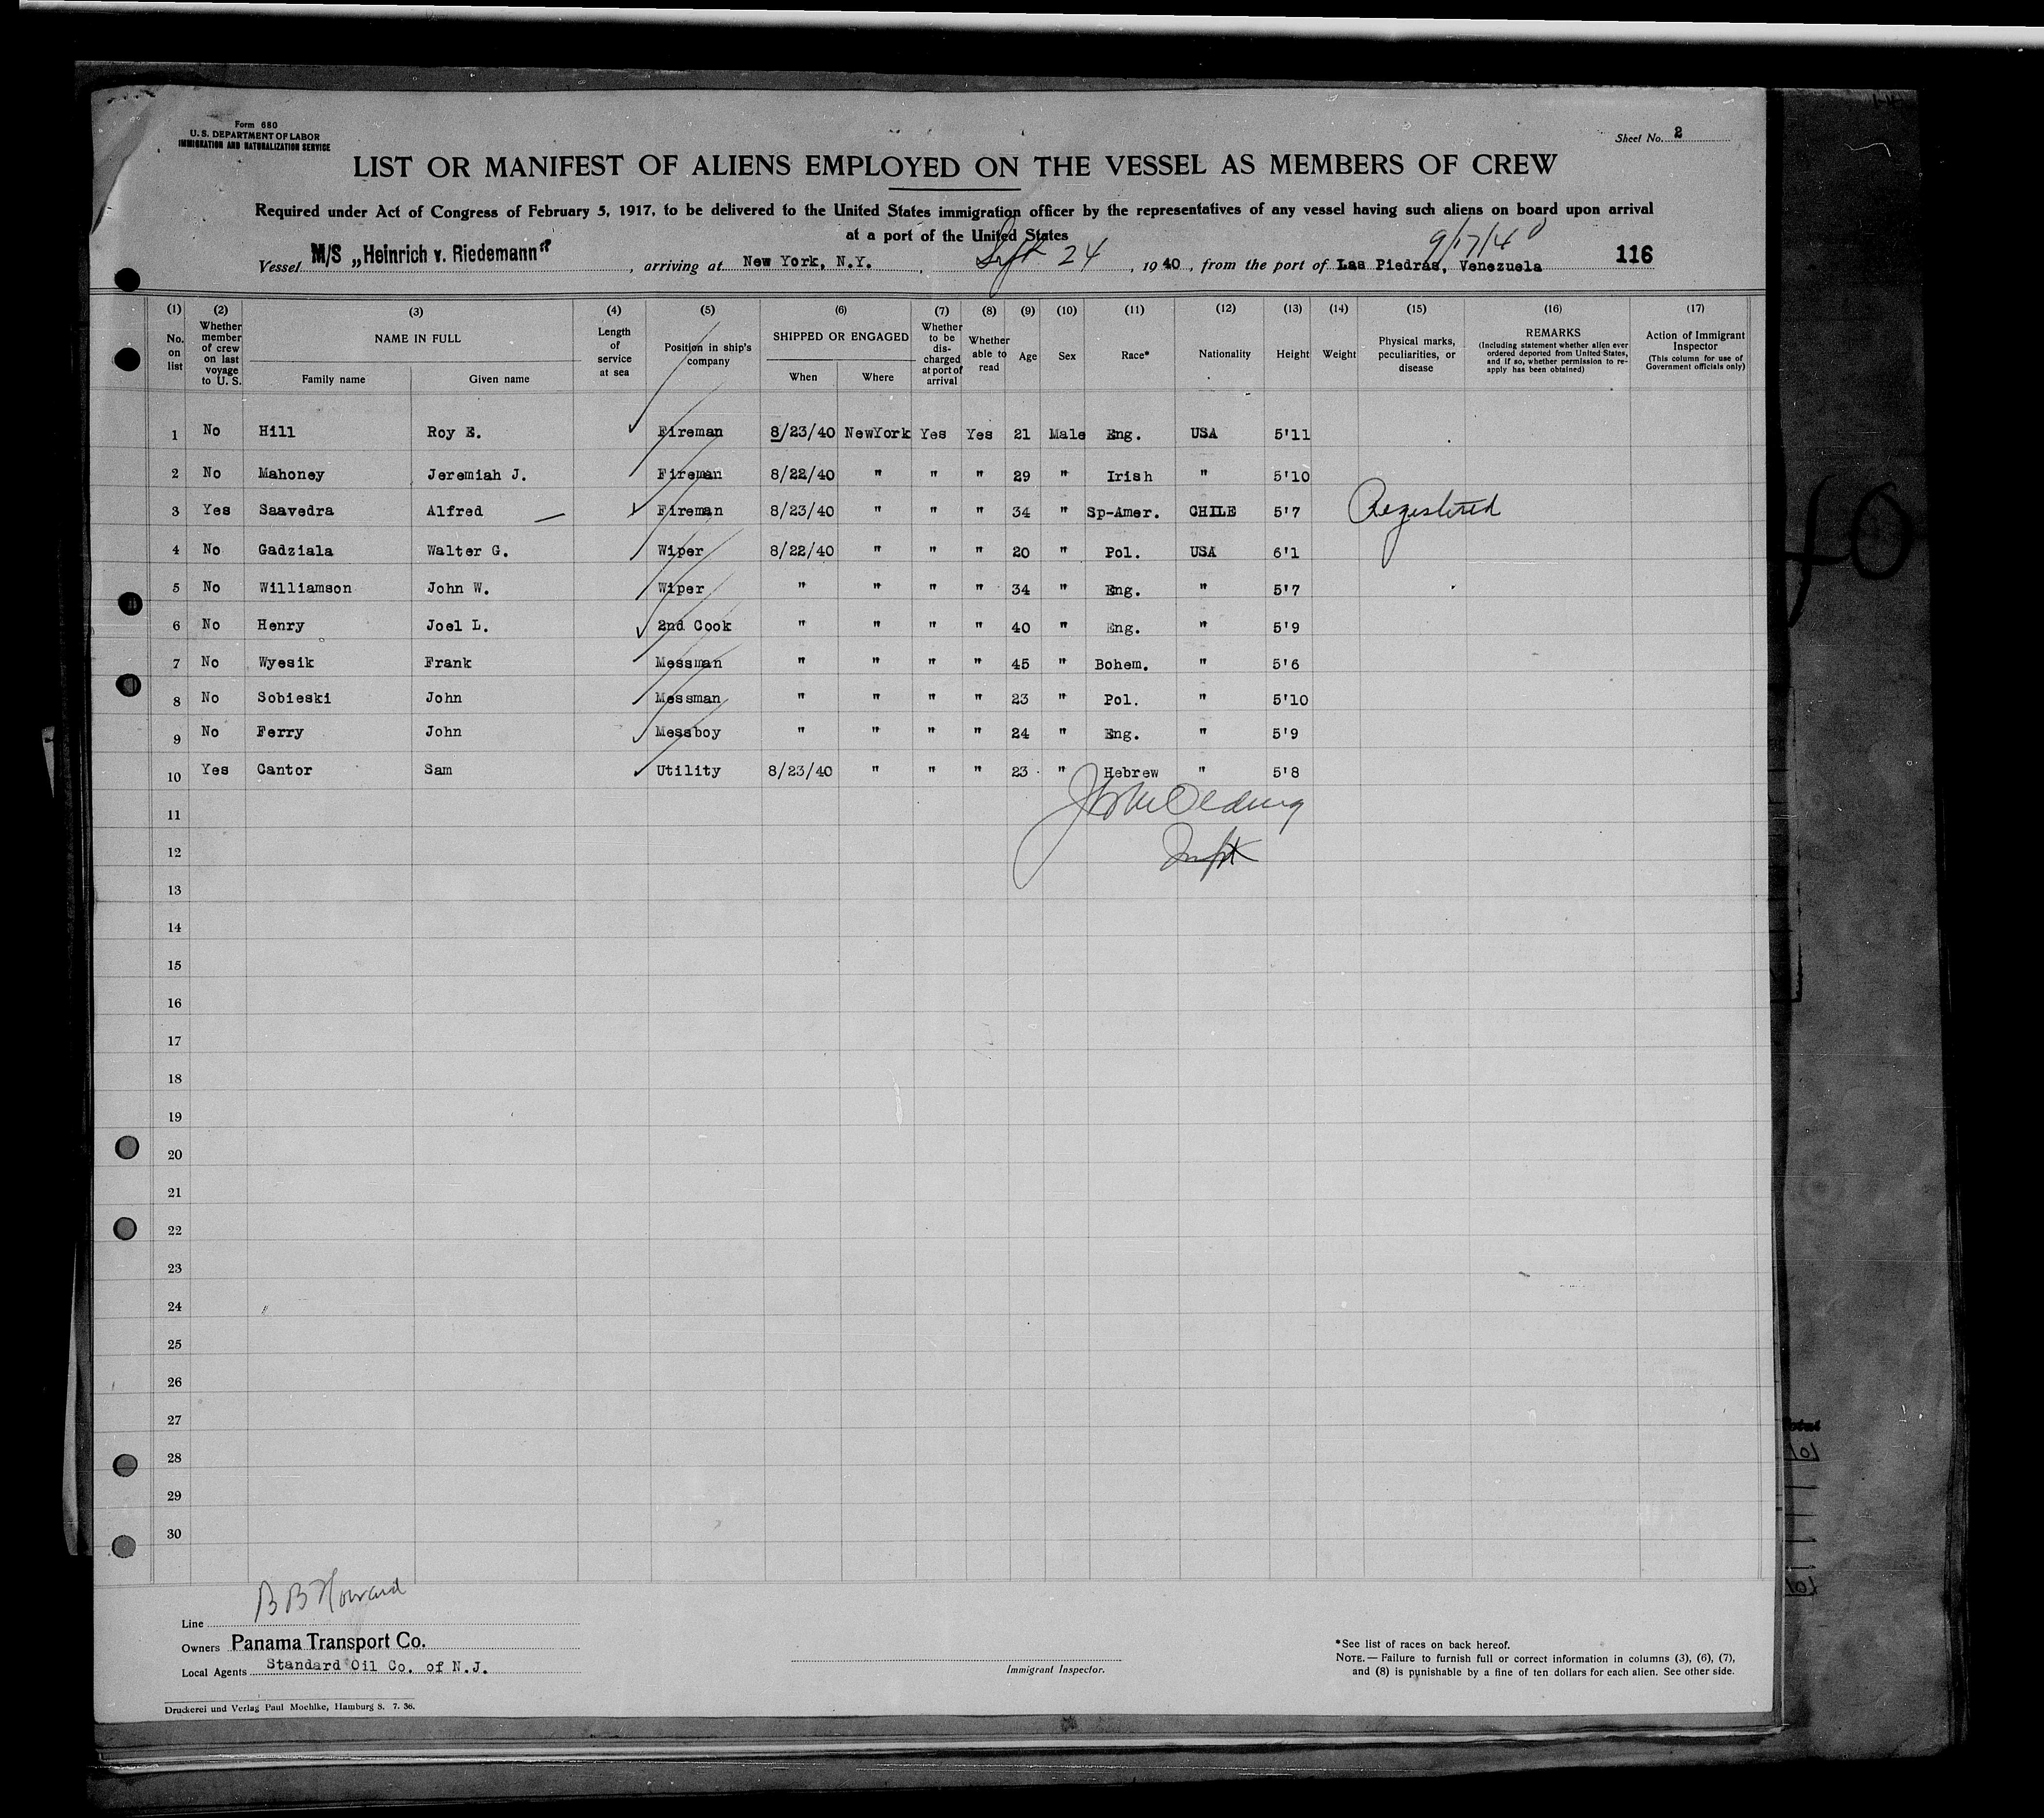 Form 680
U. S. DEPARTMENT OF LABOR
IMMIGRATION AND NATURALIZATION SERVICE
Sheet No. 2
LIST OR MANIFEST OF ALIENS EMPLOYED ON THE VESSEL AS MEMBERS OF CREW
Required under Act of Congress of February 5, 1917, to be delivered to the United States immigration officer by the representatives of any vessel having such aliens on board upon arrival
at a port of the United States
9/17/40
Vessel M/S „Heinrich v. Riedemann“ , arriving at New York, N.Y. , Sept 24 , 1940 , from the port of Las Piedras, Venezuela 116
(1) (2) (3) (4) (5) (6) (7) (8) (9) (10) (11) (12) (13) (14) (15) (16) (17)
No. on list Whether member of crew on last voyage to U. S. NAME IN FULL Family name Given name Length of service at sea Position in ship's company SHIPPED OR ENGAGED When Where Whether to be dis-charged at port of arrival Whether able to read Age Sex Race* Nationality Height Weight Physical marks, peculiarities, or disease REMARKS (Including statement whether alien ever ordered deported from United States, and if so, whether permission to re-apply has been obtained) Action of Immigrant Inspector (This column for use of Government officials only)
1 No Hill Roy E. Fireman 8/23/40 NewYork Yes Yes 21 Male Eng. USA 5'11
2 No Mahoney Jeremiah J. Fireman 8/22/40 " " " 29 " Irish " 5'10
3 Yes Saavedra Alfred — Fireman 8/23/40 " " " 34 " Sp-Amer. CHILE 5'7 Registered
4 No Gadziala Walter G. Wiper 8/22/40 " " " 20 " Pol. USA 6'1
5 No Williamson John W. Wiper " " " " 34 " Eng. " 5'7
6 No Henry Joel L. 2nd Cook " " " " 40 " Eng. " 5'9
7 No Wyesik Frank Messman " " " " 45 " Bohem. " 5'6
8 No Sobieski John Messman " " " " 23 " Pol. " 5'10
9 No Ferry John Messboy " " " " 24 " Eng. " 5'9
10 Yes Cantor Sam Utility 8/23/40 " " " 23 " Hebrew " 5'8
11
12 Inspt
13
14
15
16
17
18
19
20
21
22
23
24
25
26
27
28
29
30
Line B B Howard
Owners Panama Transport Co.
Local Agents Standard Oil Co. of N.J.
Immigrant Inspector.
*See list of races on back hereof.
NOTE.— Failure to furnish full or correct information in columns (3), (6), (7),
and (8) is punishable by a fine of ten dollars for each alien. See other side.
Druckerei und Verlag Paul Moehlke, Hamburg S. 7. 36.